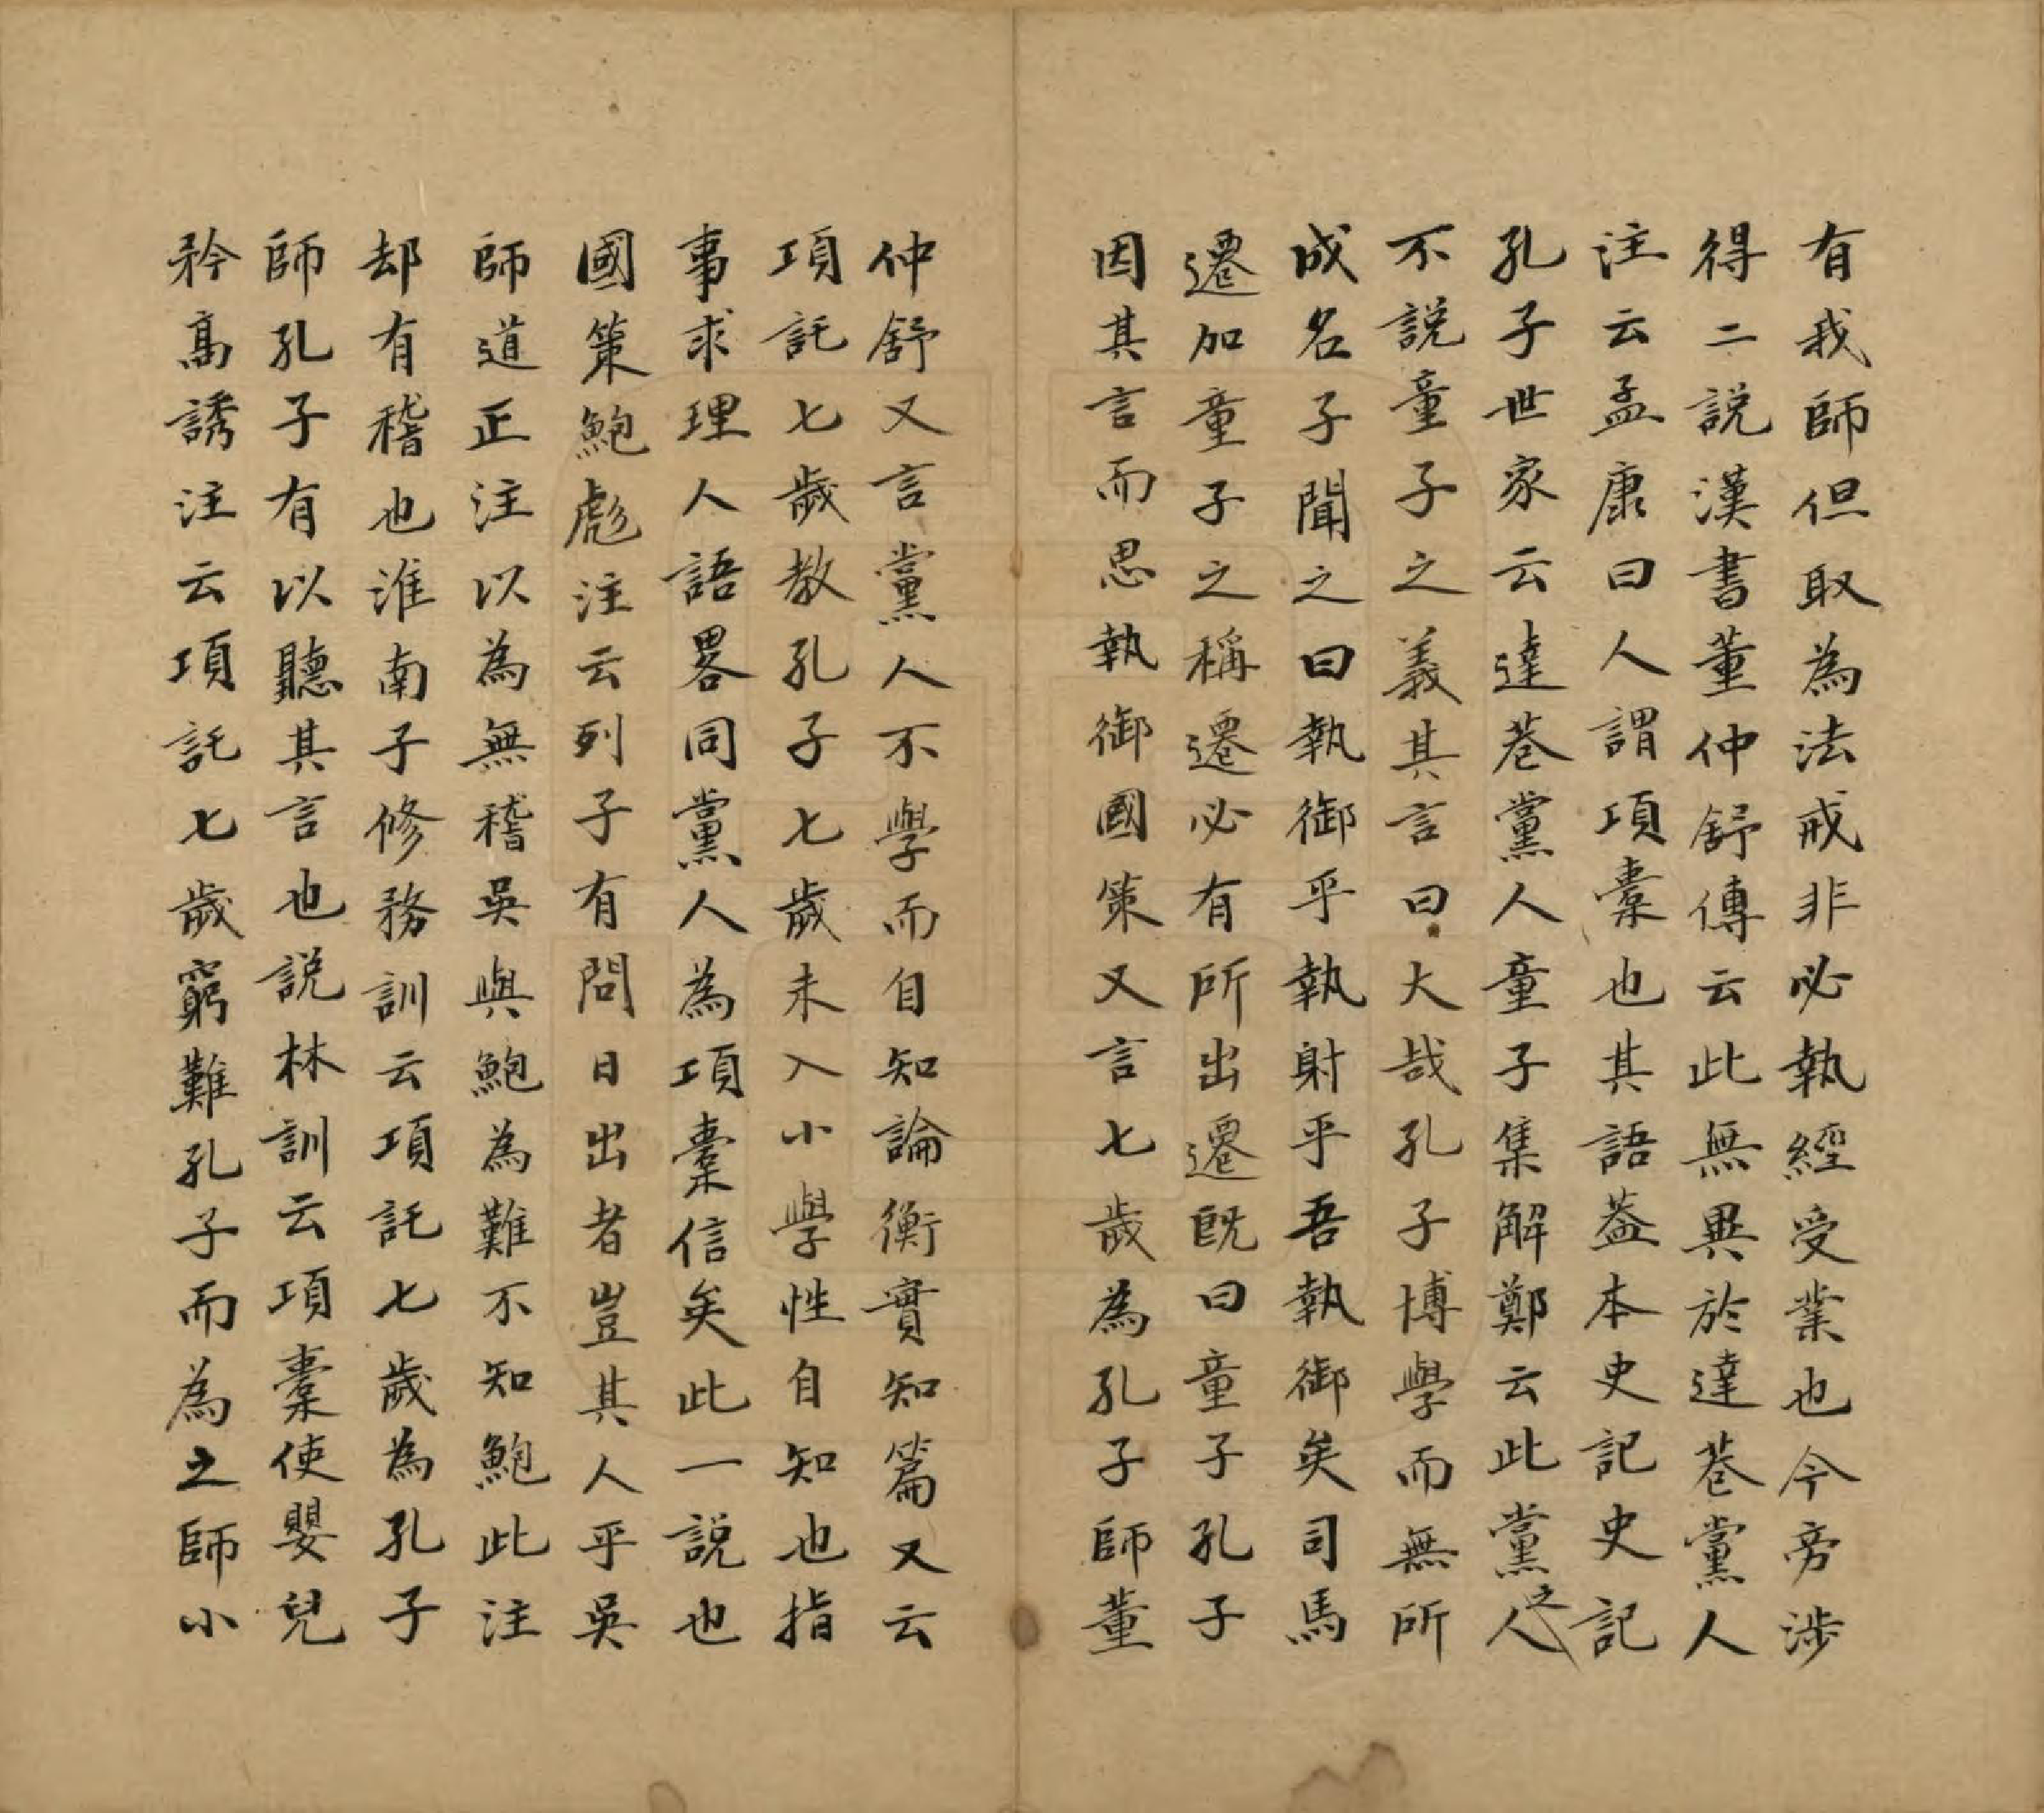 有我師但取為法戒非必執經受業也今旁涉
得二說漢書董仲舒傳云此無異於達巷黨人
注云孟康曰人謂項橐也其語葢本史記史記
孔子世家云達巷黨人童子集解鄭云此黨人之
不說童子之義其言曰大哉孔子博學而無所
成名子聞之曰執御乎執射乎吾執御矣司馬
遷加童子之稱遷必有所出遷既曰童子孔子
因其言而思執御國策又言七歲為孔子師董
仲舒又言黨人不學而自知論衡實知篇又云
項託七歲教孔子七歲未入小學性自知也指
事求理人語畧同黨人為項橐信矣此一說也
國策鮑彪注云列子有問日出者豈其人乎吳
師道正注以為無稽吳與鮑為難不知鮑此注
却有稽也淮南子修務訓云項託七歲為孔子
師孔子有以聽其言也說林訓云項橐使嬰兒
矜高誘注云項託七歲窮難孔子而為之師小